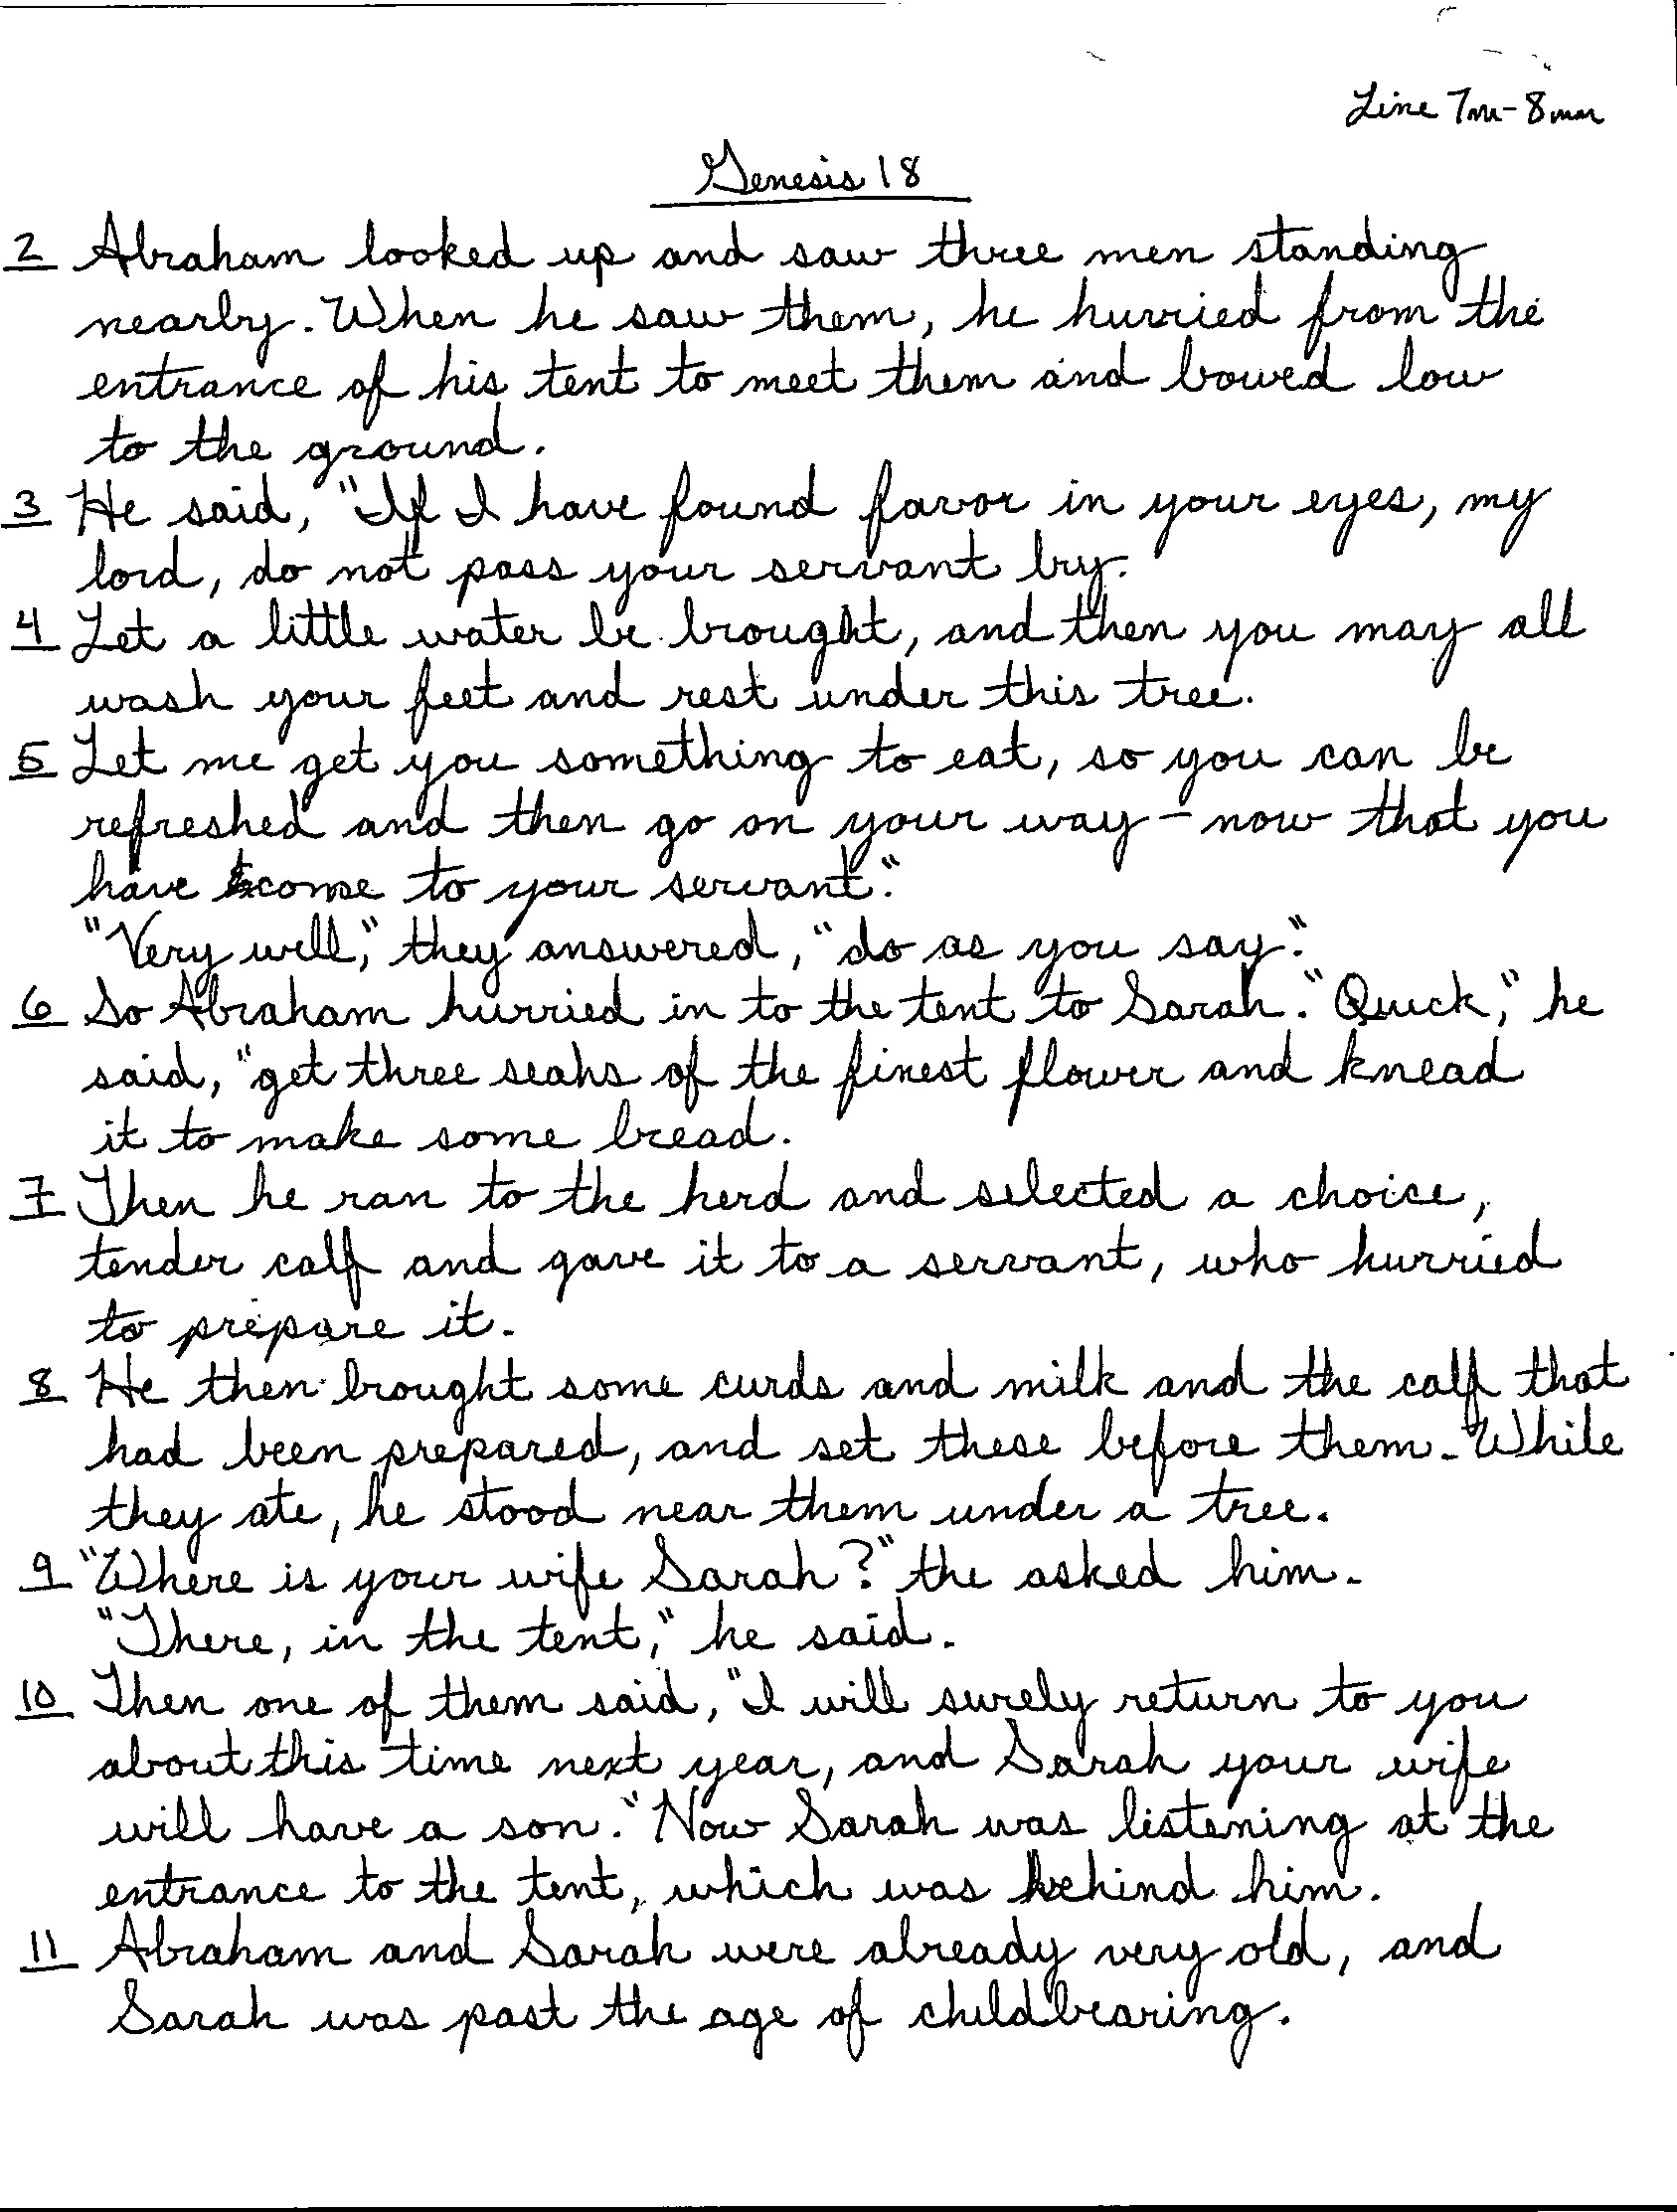 Line 7mm-8mm
Genesis 18
2 Abraham looked up and saw three men standing
nearby. When he saw them, he hurried from the
entrance of his tent to meet them and bowed low
to the ground.
3 He said, "If I have found favor in your eyes, my
lord, do not pass your servant by.
4 Let a little water be brought, and then you may all
wash your feet and rest under this tree.
5 Let me get you something to eat, so you can be
refreshed and then go on your way - now that you
have come to your servant."
"Very well," they answered, "do as you say."
6 So Abraham hurried in to the tent to Sarah. "Quick," he
said, "get three seahs of the finest flower and knead
it to make some bread.
7 Then he ran to the herd and selected a choice,
tender calf and gave it to a servant, who hurried
to prepare it.
8 He then brought some curds and milk and the calf that
had been prepared, and set these before them. While
they ate, he stood near them under a tree.
9 "Where is your wife Sarah?" the asked him.
"There, in the tent," he said.
10 Then one of them said, "I will surely return to you
about this time next year, and Sarah your wife
will have a son." Now Sarah was listening at the
entrance to the tent, which was behind him.
11 Abraham and Sarah were already very old, and
Sarah was past the age of childbearing.